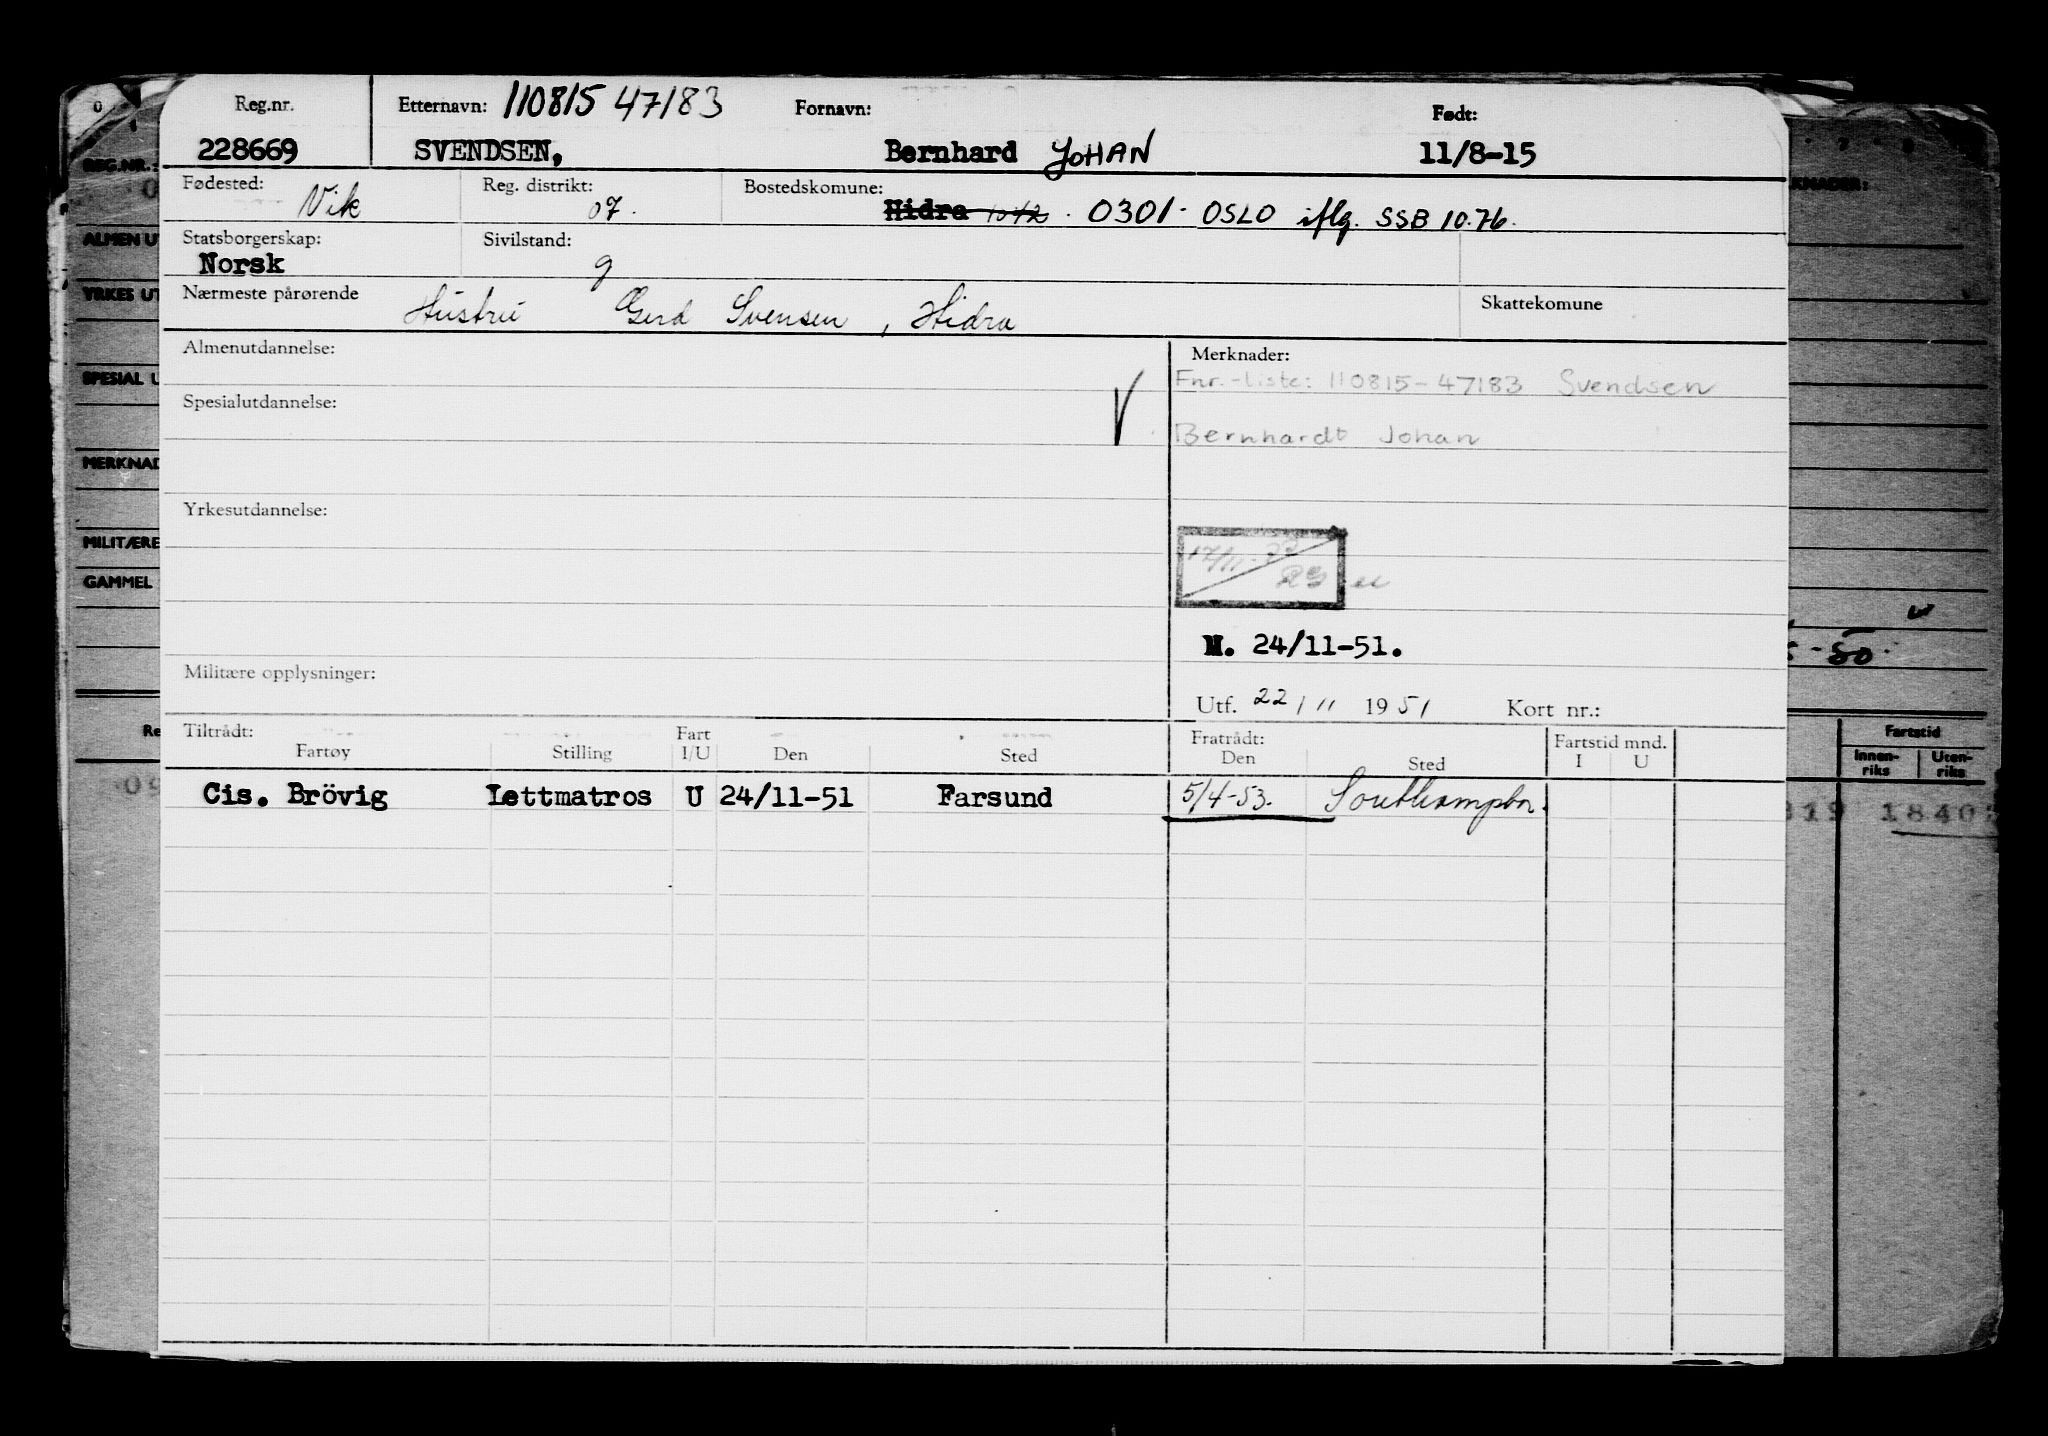 Reg.nr. Etternavn: 110815 47183 Fornavn: Født:
228669 SVENDSEN, Bernhard JOHAN 11/8-15
Fødested: Vik Reg. distrikt: 07. Bostedskomune: Hidra 1042. 0301- OSLO iflg. SSB 10.76.
Statsborgerskap: Norsk Sivilstand: g
Nærmeste pårørende Hustru Gerd Svensen, Hidra Skattekomune
Almenutdannelse:
Spesialutdannelse:
Yrkesutdannelse:
Militære opplysninger:
Merknader:
Fnr.-liste: 110815-47183 Svendsen
Bernhardt Johan
M. 24/11-51.
Utf. 22/11 1951 Kort nr.:
Tiltrådt: Fart Fratrådt: Fartstid mnd.
Fartøy Stilling I/U Den Sted Den Sted I U
Cis. Brövig Lettmatros U 24/11-51 Farsund 5/4-53. Southampton.
REG.NR.:
ALMEN UT
YRKES UT
SPESIAL U
MERKNAD
MILITÆRE
GAMMEL
Re
KNADER:
-50.
Fartstid
Innen-riks Uten-riks
319 1840